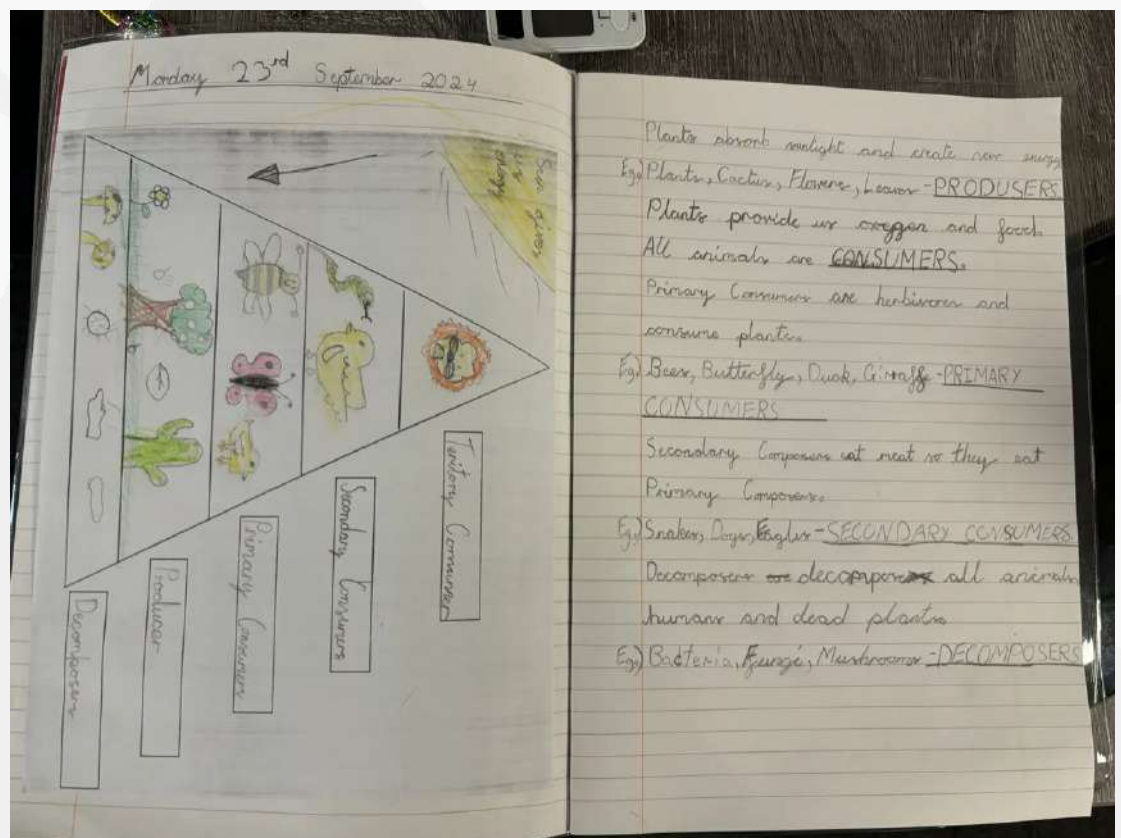 Monday 23rd September 2024
Sun gives
us
energy
Teritory Consumer
Secondary Consumers
Primary Consumers
Producer
Decomposers
Plants absorb sunlight and create new energy
Eg.) Plants, Cactus, Flowers, Leaves - PRODUSERS
Plants provide us oxygen and food.
All animals are CONSUMERS.
Primary Consumers are herbivores and
consume plants.
Eg.) Bees, Butterfly, Duck, Giraffe - PRIMARY
CONSUMERS
Secondary Componers eat meat so they eat
Primary Componers.
Eg.) Snakes, Dogs, Eagles - SECONDARY CONSUMERS.
Decomposers decompose all animals
humans and dead plants.
Eg.) Bacteria, Fungi, Mushrooms - DECOMPOSERS